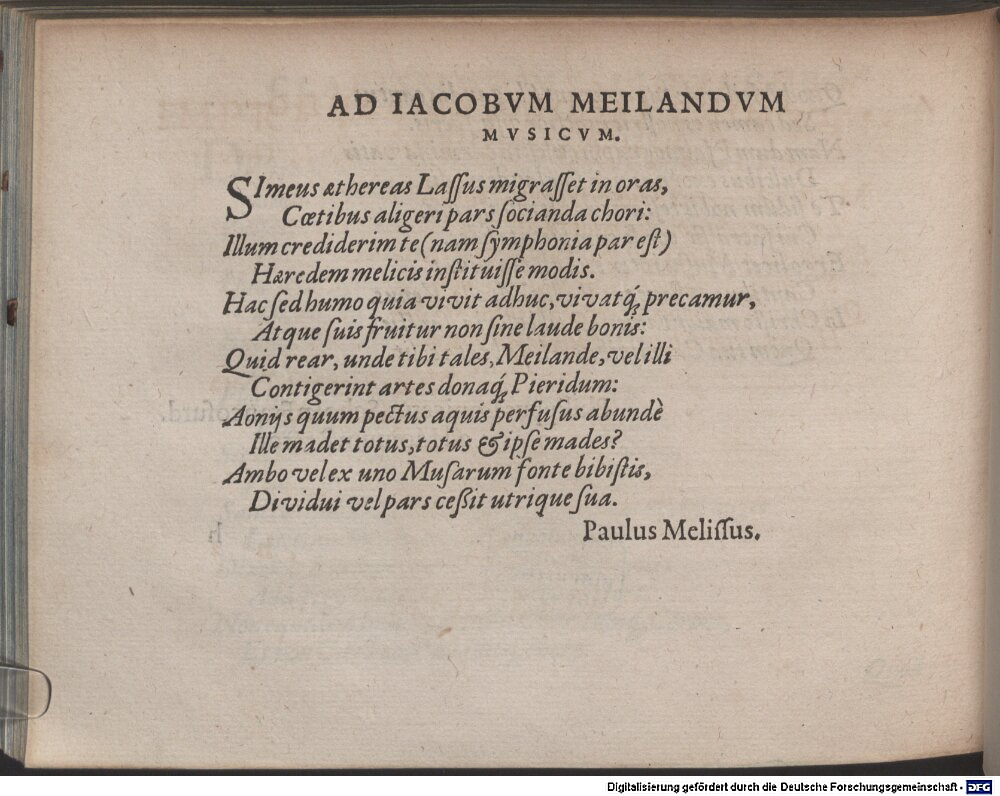 AD IACOBVM MEILANDVM
MVSICVM.
SI meus æthereas Laſſus migraſſet in oras,
Cœtibus aligeri pars ſocianda chori:
Illum crediderim te (nam ſymphonia par eſt)
Hæredem melicis inſtituiſſe modis.
Hac ſed humo quia vivit adhuc, vivatq́; precamur,
Atque ſuis fruitur non ſine laude bonis:
Quid rear, unde tibi tales, Meilande, vel illi
Contigerint artes donaq́; Pieridum:
Aonijs quum pectus aquis perfuſus abundè
Ille madet totus, totus & ipſe mades?
Ambo vel ex uno Muſarum fonte bibiſtis,
Dividui vel pars ceßit utrique ſua.
Paulus Meliſſus.
Digitalisierung gefördert durch die Deutsche Forschungsgemeinschaft - DFG